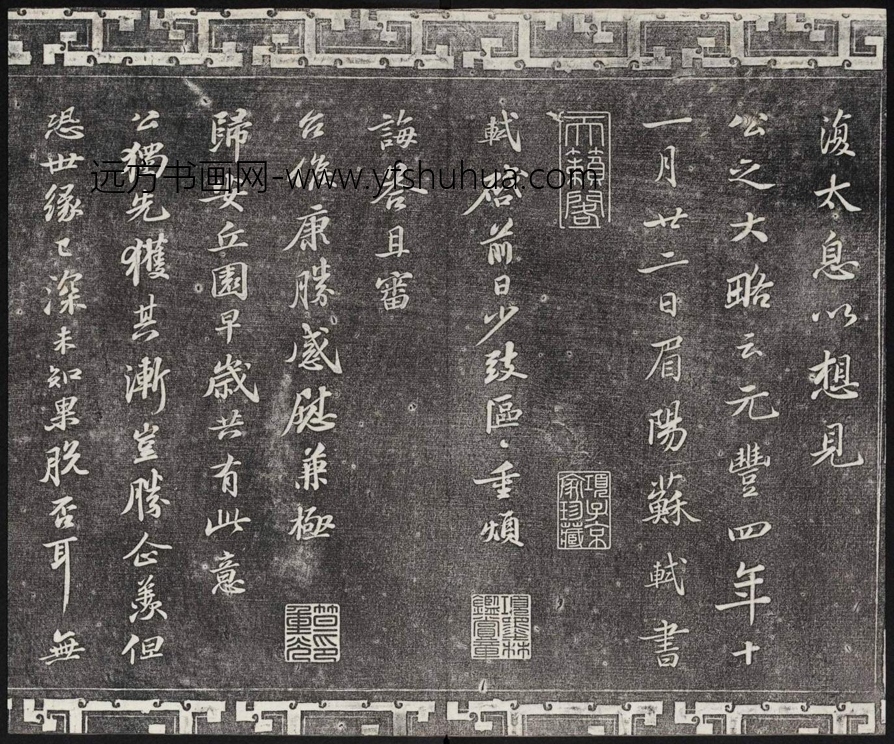 復太息以想見
公之大略云元豐四年十
一月廿二日眉陽蘇軾書
天籟閣
項子京
家珍藏
軾啓前日少致區〻重煩
項墨林
鑑賞章
誨答且審
台候康勝感慰兼極
笪重光印
歸安丘園早歲共有此意
公獨先獲其漸豈勝企羨但
恐世緣已深未知果脫否耳無
远方书画网-www.yfshuhua.com